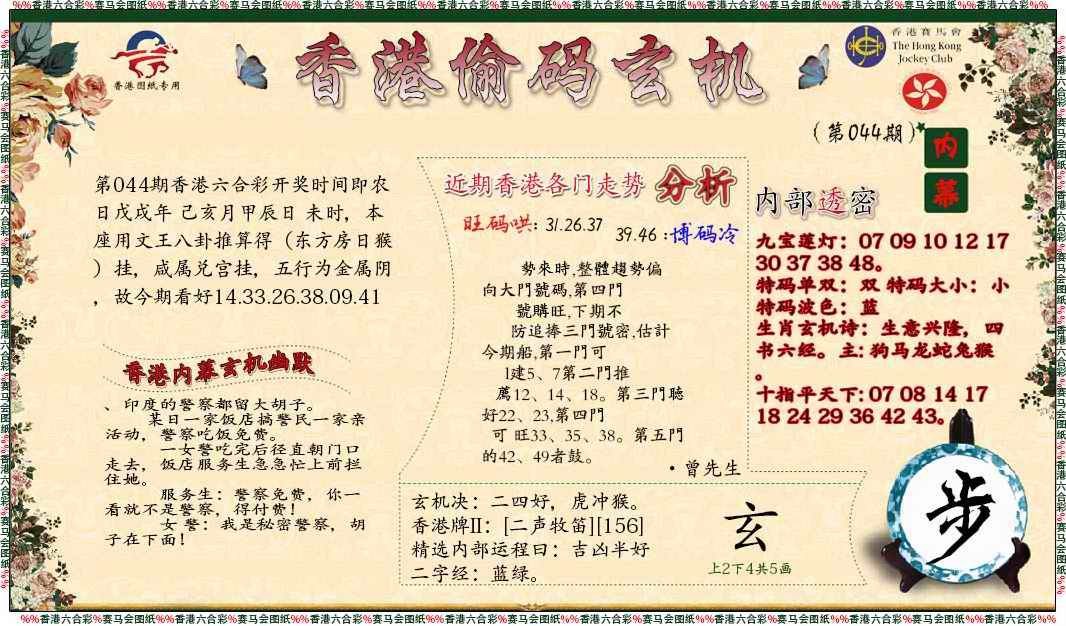 %%香港六合彩%赛马会图纸%%香港六合彩%赛马会图纸%%香港六合彩%赛马会图纸%%香港六合彩%赛马会图纸%%香港六合彩%赛马会图纸%%香港六合彩%赛马会图纸%%香港六合彩%%
香港图纸专用
香港偷码玄机
香港賽馬會
The Hong Kong
Jockey Club
(第044期)
内
幕
第044期香港六合彩开奖时间即农
日戊戌年 己亥月甲辰日 未时，本
座用文王八卦推算得（东方房日猴
）挂，咸属兑宫挂，五行为金属阴
，故今期看好14.33.26.38.09.41
香港内幕玄机幽默
、印度的警察都留大胡子。
某日一家饭店搞警民一家亲
活动，警察吃饭免费。
一女警吃完后径直朝门口
走去，饭店服务生急急忙上前拦
住她。
服务生：警察免费，你一
看就不是警察，得付费！
女 警：我是秘密警察，胡
子在下面！
近期香港各门走势 分析
旺码哄：31.26.37
39.46：博码冷
勢來時,整體趨勢偏
向大門號碼,第四門
號購旺,下期不
防追捧三門號密,估計
今期船,第一門可
1建5、7第二門推
薦12、14、18。第三門聴
好22、23,第四門
可 旺33、35、38。第五門
的42、49者鼓。
·曾先生
内部透密
九宝莲灯：07 09 10 12 17
30 37 38 48。
特码单双：双 特码大小：小
特码波色：蓝
生肖玄机诗：生意兴隆，四
书六经。主: 狗马龙蛇兔猴
。
十指平天下: 07 08 14 17
18 24 29 36 42 43。
玄机决：二四好，虎冲猴。
香港牌II：[二声牧笛][156]
精选内部运程曰：吉凶半好
二字经：蓝绿。
玄
上2下4共5画
步
%%香港六合彩%赛马会图纸%%香港六合彩%赛马会图纸%%香港六合彩%赛马会图纸%%香港六合彩%赛马会图纸%%香港六合彩%赛马会图纸%%香港六合彩%赛马会图纸%%香港六合彩%%